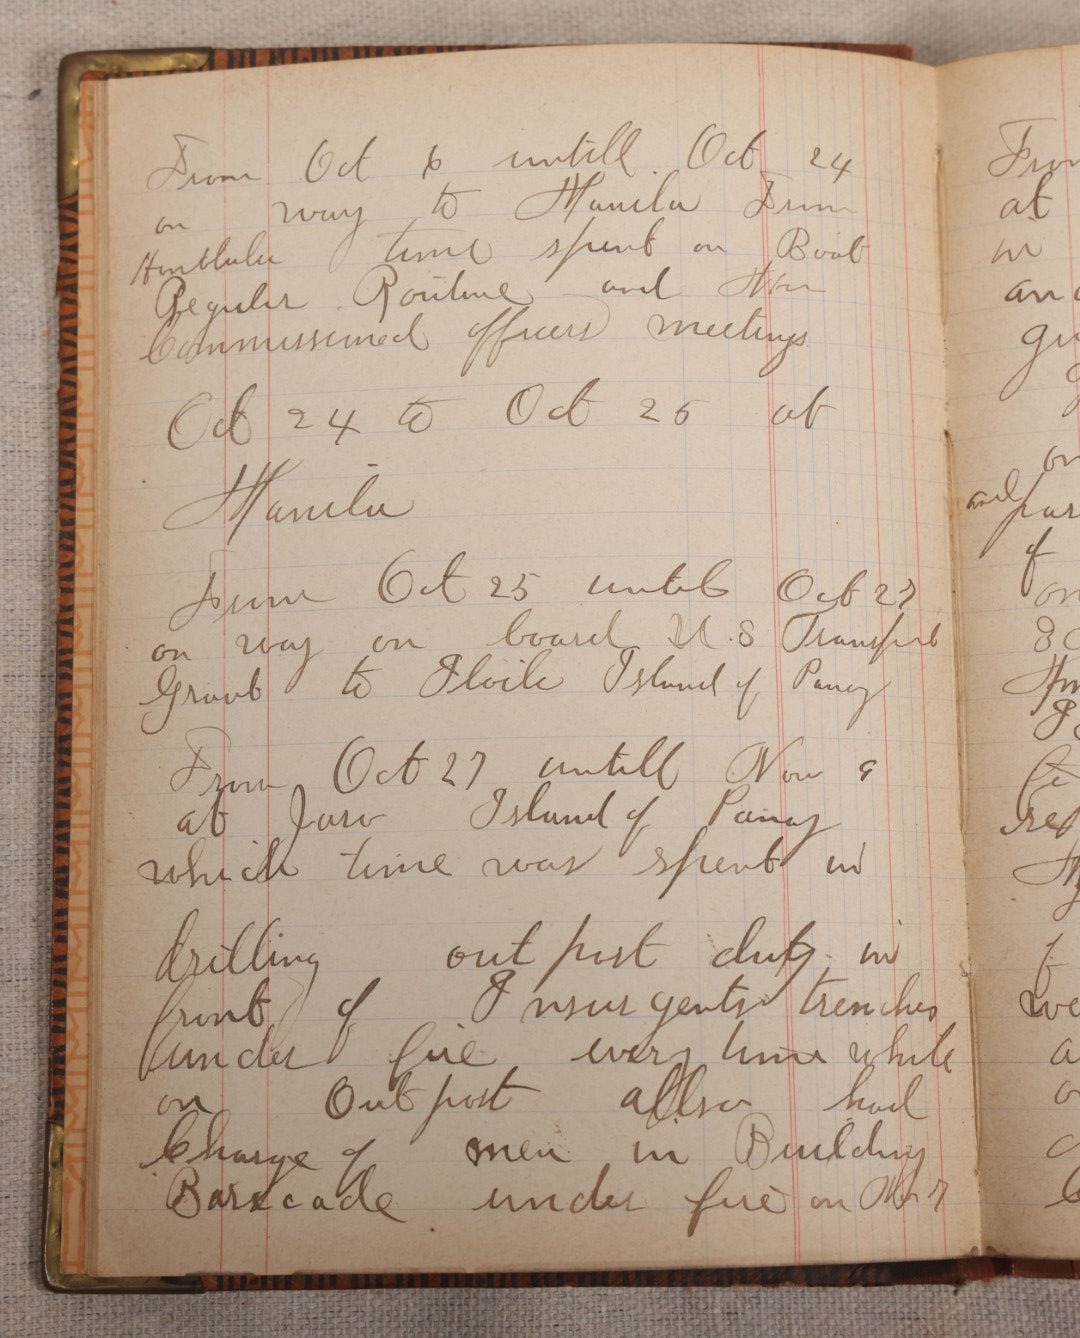 From Oct 6 untill Oct 24
on way to Manila From
Honolulu time spent on Boat
Regular Routine and Non
Commissioned officers meetings
Oct 24 to Oct 25 at
Manila
From Oct 25 until Oct 27
on way on board U.S Transport
Grant to Iloilo Island of Panay
From Oct 27 untill Nov 9
at Jaro Island of Panay
which time was spent in
drilling out post duty in
front of Insurgents trenches
under fire every time while
on Out post allso had
Charge of men in Building
Baracade under fire on Nov 7
From
at
in
and
on
and
of
on